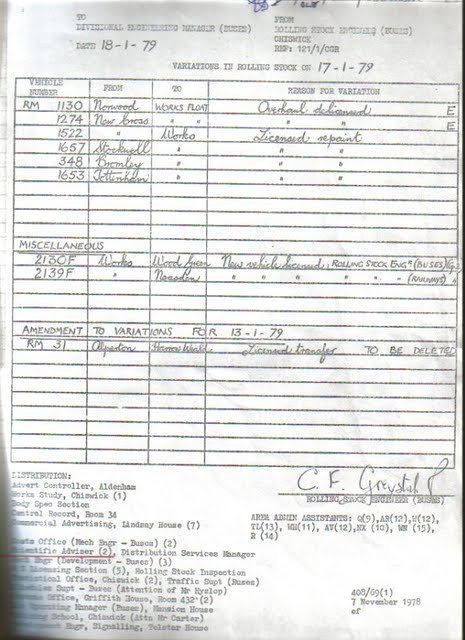 TO FROM
DIVISIONAL ENGINEERING MANAGER (BUSES) ROLLING STOCK ENGINEER (BUSES)
CHISWICK
DATE 18-1-79 REF: 121/1/CGR
VARIATIONS IN ROLLING STOCK ON 17-1-79
VEHICLE NUMBER FROM TO REASON FOR VARIATION
RM 1130 Norwood WORKS FLOAT Overhaul delicensed E
1274 New Cross " " " " E
1522 " Works Licensed repaint
1657 Stockwell " " "
348 Bromley " " "
1653 Tottenham " " "
MISCELLANEOUS
2130F Works Wood Green New vehicle licensed; ROLLING STOCK ENGR (BUSES)
2139F " Neasden " " " " " (RAILWAYS) "
AMENDMENT TO VARIATIONS FOR 13-1-79
RM 31 Alperton Harrow Weald Licensed transfer TO BE DELETED
DISTRIBUTION:
Advert Controller, Aldenham
Works Study, Chiswick (1)
Body Spec Section
Central Record, Room 34
Commercial Advertising, Lindsay House (7)
ROLLING STOCK ENGINEER (BUSES)
AREA ADMIN ASSISTANTS: Q(9), AR(12), W(12),
TL(13), WH(11), AV(12), NX (10), WN (15),
R (14)
Office (Mech Engr - Buses) (2)
Scientific Adviser (2), Distribution Services Manager
Engr (Development - Buses) (3)
Licensing Section (5), Rolling Stock Inspection
Office, Chiswick (2), Traffic Supt (Buses)
Supt - Buses (Attention of Mr Hyslop)
Office, Griffith House, Room 432 (2)
Manager (Buses), Mansion House
School, Chiswick (Attn Mr Carter)
Engr, Signalling, Telstar House
408/69(1)
7 November 1978
ef